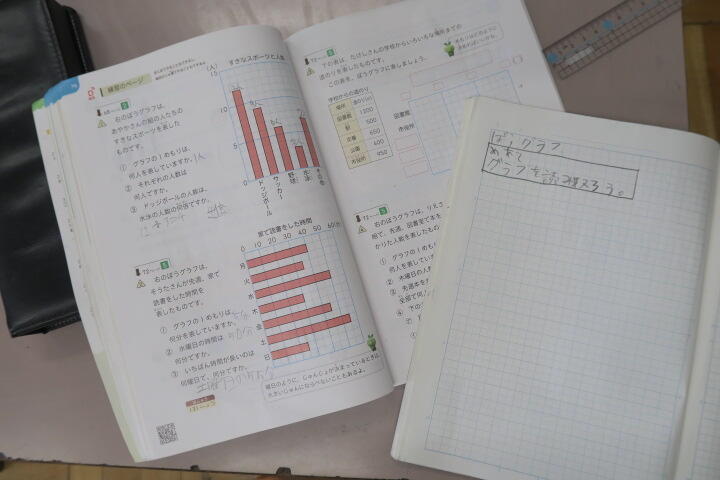 練習のページ
右のぼうグラフは、
あやかさんの組の人たちの
すきなスポーツを表した
ものです。
① グラフの1めもりは、
何人を表していますか。
② それぞれの人数は
何人ですか。
③ ドッジボールの人数は、
水泳の人数の何倍ですか。
すきなスポーツと人数
(人)
15
10
5
0
ドッジボール
サッカー
野球
水泳
その他
右のぼうグラフは、
そうたさんが先週、家で
読書をした時間を
表したものです。
① グラフの1めもりは
何分を表していますか。
② 水曜日の時間は
何分ですか。
③ いちばん時間が長いのは
何曜日で、何分ですか。
家で読書をした時間
0 10 20 30 40 50 60(分)
月
火
水
木
金
土
日
曜日のように、じゅんじょが決まっているときは、
大きいじゅんにならべないこともあるよ。
下の表は、たけしさんの学校からいろいろな場所までの
道のりを表したものです。
この表を、ぼうグラフに表しましょう。
学校からの道のり
場所 道のり(m)
図書館 1200
駅 500
交番 650
公園 400
市役所 950
図書館
市役所
右のぼうグラフは、りえさ
組で、先週、図書室で本を
かりた人数を表したもの
① グラフの1めも
何人を表してい
② 水曜日の人
③ 先週本を
全部で何
④ 下の
ぼうグラフ
めあて
グラフを読み取ろう。